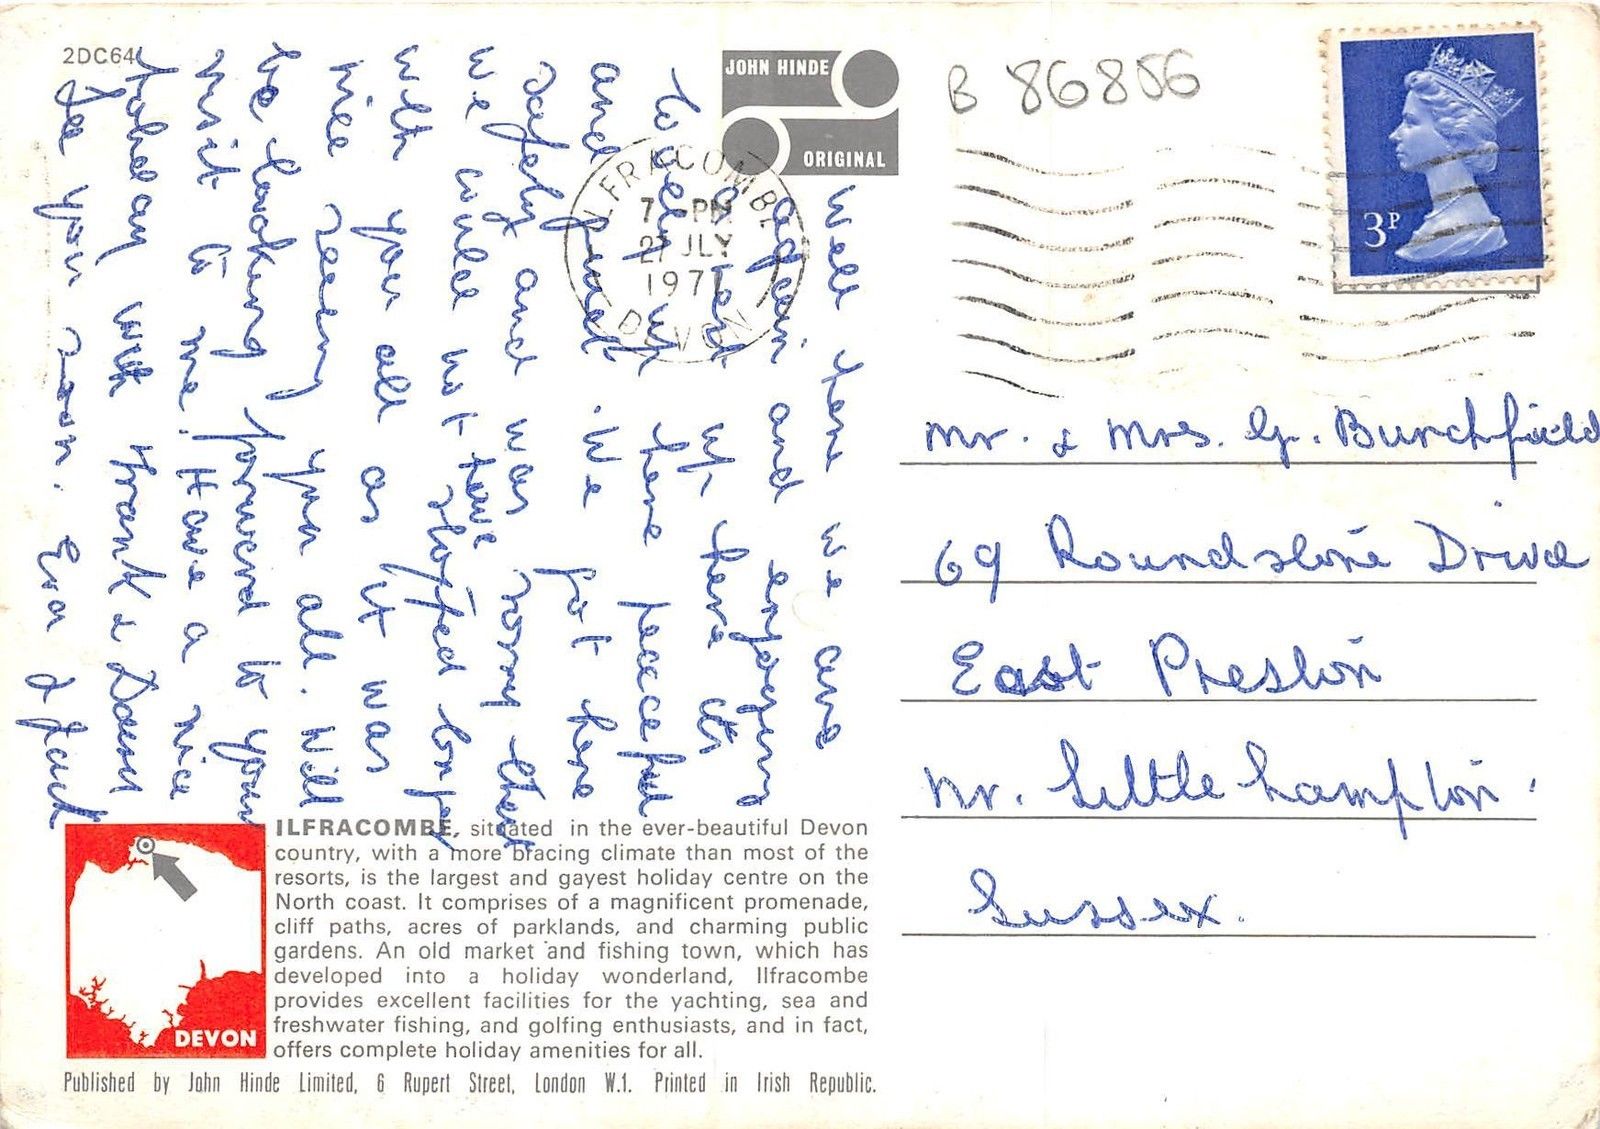 2DC64
JOHN HINDE
ORIGINAL
B 86856
3P
ILFRACOMBE
7 PM
27 JLY
1971
DEVON
Well here we are
again and enjoying
a rest up here its
up here peaceful
and quiet. We got here
safely and was sorry that
we could not have stopped longer
with you all as it was
nice seeing you all. Will
be looking forward to your
visit to me. Have a nice
holiday with Frank &
See you soon. Eva & Jack
Mr. & Mrs. G. Burchfield
69 Roundstone Drive
East Preston
Nr. Littlehampton.
Sussex.
ILFRACOMBE, situated in the ever-beautiful Devon
country, with a more bracing climate than most of the
resorts, is the largest and gayest holiday centre on the
North coast. It comprises of a magnificent promenade,
cliff paths, acres of parklands, and charming public
gardens. An old market and fishing town, which has
developed into a holiday wonderland, Ilfracombe
provides excellent facilities for the yachting, sea and
freshwater fishing, and golfing enthusiasts, and in fact,
offers complete holiday amenities for all.
DEVON
Published by John Hinde Limited, 6 Rupert Street, London W.1. Printed in Irish Republic.